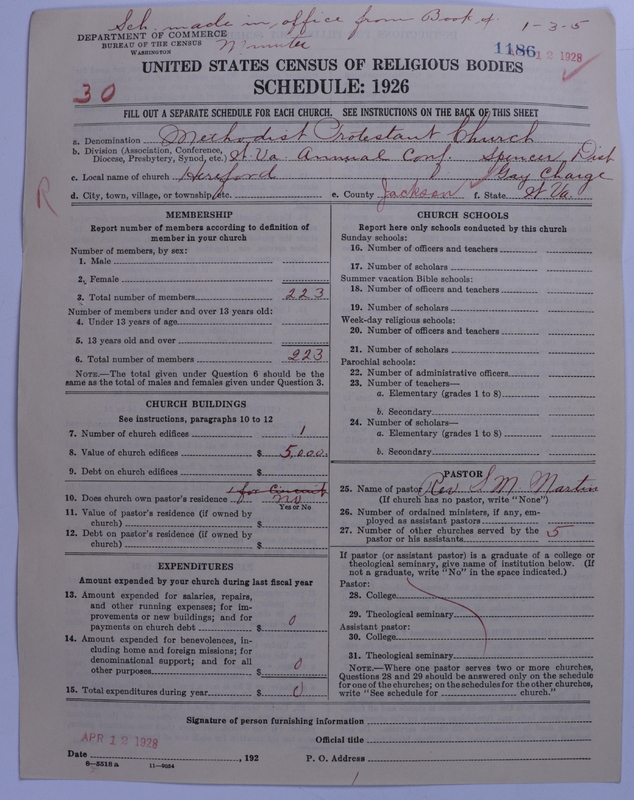 Sch. made in office from Book of 1-3-5
DEPARTMENT OF COMMERCE
BUREAU OF THE CENSUS
WASHINGTON
Minutes
1186
APR 12 1928
UNITED STATES CENSUS OF RELIGIOUS BODIES
30
SCHEDULE: 1926
FILL OUT A SEPARATE SCHEDULE FOR EACH CHURCH. SEE INSTRUCTIONS ON THE BACK OF THIS SHEET
a. Denomination Methodist Protestant Church
b. Division (Association, Conference,
Diocese, Presbytery, Synod, etc.) W Va. Annual Conf. Spencer Dist
c. Local name of church Hereford Gay Charge
d. City, town, village, or township, etc. e. County Jackson f. State W Va.
R
MEMBERSHIP
Report number of members according to definition of
member in your church
Number of members, by sex:
1. Male
2. Female
3. Total number of members 223
Number of members under and over 13 years old:
4. Under 13 years of age
5. 13 years old and over
6. Total number of members 223
NOTE.—The total given under Question 6 should be the
same as the total of males and females given under Question 3.
CHURCH BUILDINGS
See instructions, paragraphs 10 to 12
7. Number of church edifices 1
8. Value of church edifices $ 5,000.
9. Debt on church edifices $
1 for Circuit
10. Does church own pastor's residence? no
Yes or No
11. Value of pastor's residence (if owned by
church) $
12. Debt on pastor's residence (if owned by
church) $
EXPENDITURES
Amount expended by your church during last fiscal year
13. Amount expended for salaries, repairs,
and other running expenses; for im-
provements or new buildings; and for
payments on church debt $ 0
14. Amount expended for benevolences, in-
cluding home and foreign missions; for
denominational support; and for all
other purposes $ 0
15. Total expenditures during year $ 0
CHURCH SCHOOLS
Report here only schools conducted by this church
Sunday schools:
16. Number of officers and teachers
17. Number of scholars
Summer vacation Bible schools:
18. Number of officers and teachers
19. Number of scholars
Week-day religious schools:
20. Number of officers and teachers
21. Number of scholars
Parochial schools:
22. Number of administrative officers
23. Number of teachers—
a. Elementary (grades 1 to 8)
b. Secondary
24. Number of scholars—
a. Elementary (grades 1 to 8)
b. Secondary
PASTOR
25. Name of pastor Rev S. M. Martin
(If church has no pastor, write "None")
26. Number of ordained ministers, if any, em-
ployed as assistant pastors
27. Number of other churches served by the
pastor or his assistants 5
If pastor (or assistant pastor) is a graduate of a college or
theological seminary, give name of institution below. (If
not a graduate, write "No" in the space indicated.)
Pastor:
28. College
29. Theological seminary
Assistant pastor:
30. College
31. Theological seminary
NOTE.—Where one pastor serves two or more churches,
Questions 28 and 29 should be answered only on the schedule
for one of the churches; on the schedules for the other churches,
write "See schedule for church."
Signature of person furnishing information
APR 12 1928
Official title
Date , 192
P. O. Address
8—5518a 11—9034